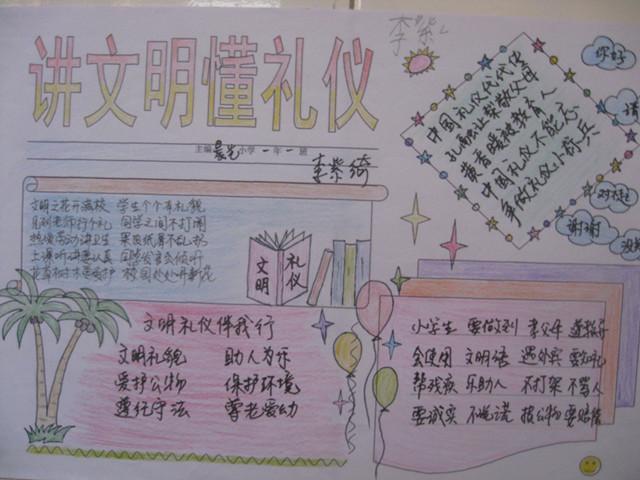 讲文明懂礼仪
李紫
主编 晨光小学一年一班
李紫绮
你好
中国礼仪代代传
孔融让梨敬父母
黄香暖被教育人
中国礼仪不能忘
争做礼仪小标兵
对不起
谢谢
没
文明之花开满校 学生个个有礼貌
见到老师行个礼 同学之间不打闹
热爱劳动讲卫生 果皮纸屑不乱扔
上课听讲要认真 回答发言会倾听
花草树木要爱护 校园处处
文明
礼仪
文明礼仪伴我行
文明礼貌 助人为乐
爱护公物 保护环境
遵纪守法 尊老爱幼
小学生 要做到 孝父母 尊
会使用 文明语 遇外宾 要知礼
帮残疾 乐助人 不打架 不骂人
要诚实 不说谎 损公物 要赔偿